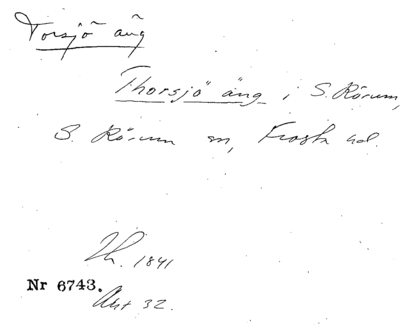 Torsjö äng
Thorsjö äng i S. Rörum,
S. Rörum sn, Frosta hd.
Lh. 1841
Nr 6743.
Akt 32.